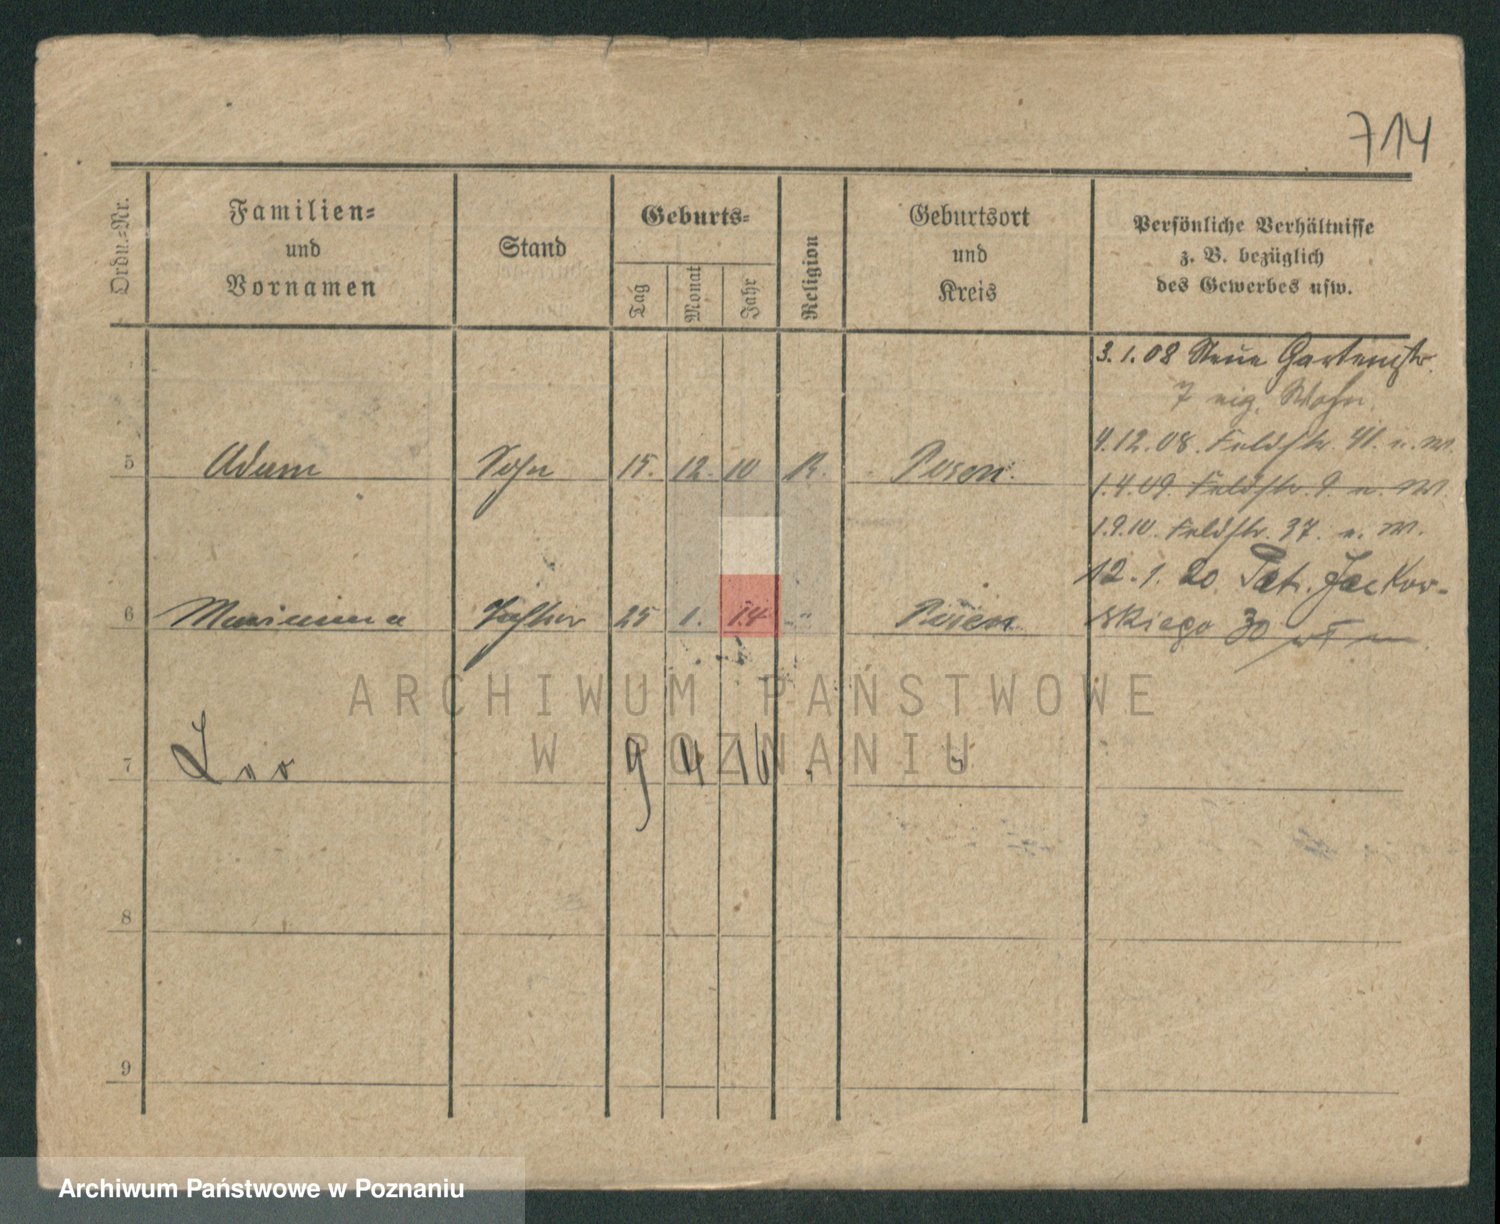 714
Ordn.-Nr.
Familien- und Vornamen
Stand
Geburts-
Tag
Monat
Jahr
Religion
Geburtsort und Kreis
Persönliche Verhältnisse
z. B. bezüglich
des Gewerbes usw.
3.1.08 Neue Gartenstr.
7 eig. Wohn.
4.12.08. Feldstr. 41. u. W.
5 Adam Sohn 15. 12. 10 K. Posen.
1.4.09. Feldstr. 9 u. W.
1.9.10. Feldstr. 37. u. W.
12.1.20 Pat. Jackow-
6 Marianna Tochter 25 1. 14 -"- Posen
skiego 30
ARCHIWUM PAŃSTWOWE
W POZNANIU
7 Leo 9 4 16
8
9
Archiwum Państwowe w Poznaniu